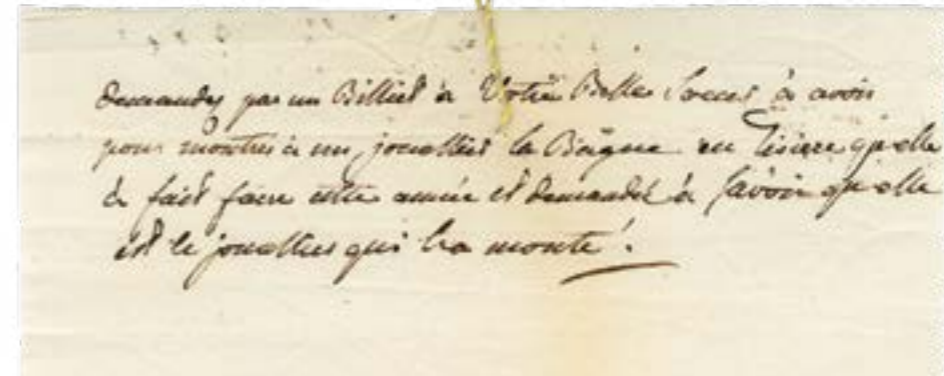 demandez par un Billiet à Votre Belle Soeur à avoir
pour montrer à un jouallier la Bague en Lisiere qu'elle
à fait faire cette année et demandez à savoir quelle
est le jouallier qui l'a monté.